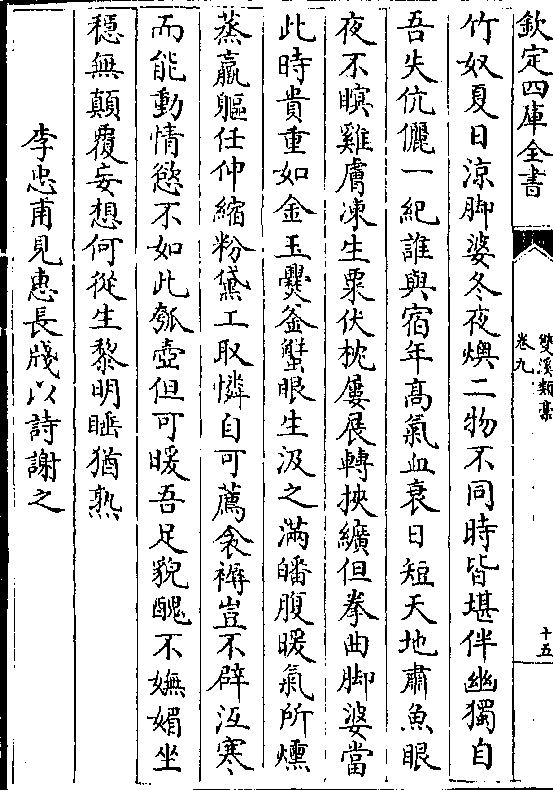 欽定四庫全書
雙溪類稾
卷九
十五
竹奴夏日涼脚婆冬夜燠二物不同時皆堪伴幽獨自
吾失伉儷一紀誰與宿年髙氣血衰日短天地肅魚眼
夜不瞑雞膚凍生粟伏枕屢展轉挾纊但拳曲脚婆當
此時貴重如金玉㸑釜蟹眼生汲之滿皤腹暖氣所燻
蒸羸軀任伸縮粉黛工取憐自可薦衾褥豈不辟沍寒
而能動情慾不如此瓠壺但可暖吾足貌醜不嫵媚坐
穩無顛覆妄想何從生黎明睡猶熟
李忠甫見惠長牋以詩謝之